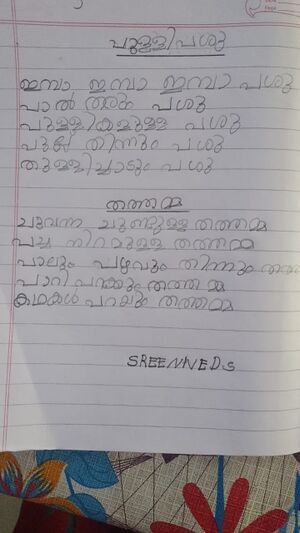 പുള്ളിപശു
ഇമ്പാ ഇമ്പാ ഇമ്പാ പശു
പാൽ തരും പശു
പുള്ളികളുള്ള പശു
പുല്ല് തിന്നും പശു
തുള്ളിച്ചാടും പശു
തത്തമ്മ
ചുവന്ന ചുണ്ടുള്ള തത്തമ്മ
പച്ച നിറമുള്ള തത്തമ്മ
പാലും പഴവും തിന്നും
പാറി പറക്കും തത്തമ്മ
കഥകൾ പറയും തത്തമ്മ
SREENIVED.S